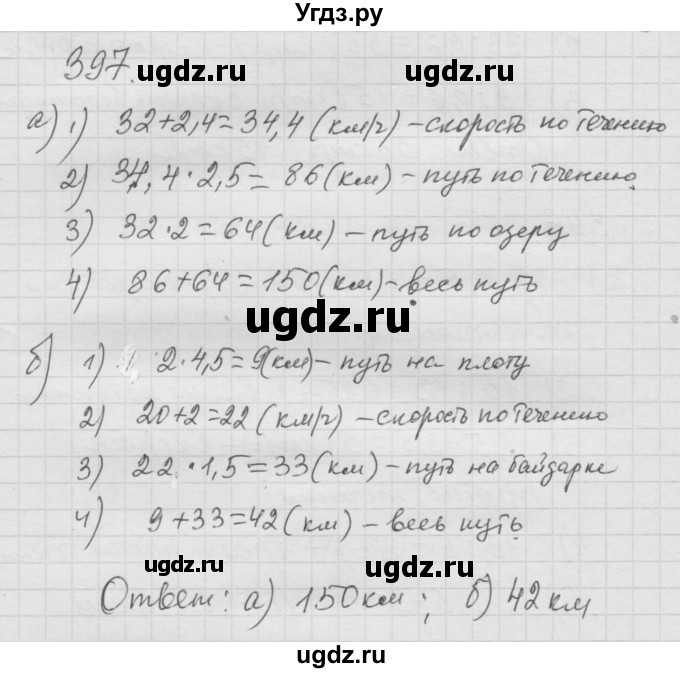 Угдз.ру
397.
ugdz.ru ugdz.ru
а) 1) 32+2,4=34,4(км/ч)-скорость по течению
2) 34,4·2,5=86(км)-путь по течению.
3) 32·2=64(км)-путь по озеру
4) 86+64=150(км)-весь путь
ugdz.ru
б) 1) 2·4,5=9(км)-путь на плоту
2) 20+2=22(км/ч)-скорость по течению
3) 22·1,5=33(км)-путь на байдарке
4) 9+33=42(км)-весь путь.
ugdz.ru ugdz.ru
Ответ: а) 150км; б) 42 км
ugdz.ru